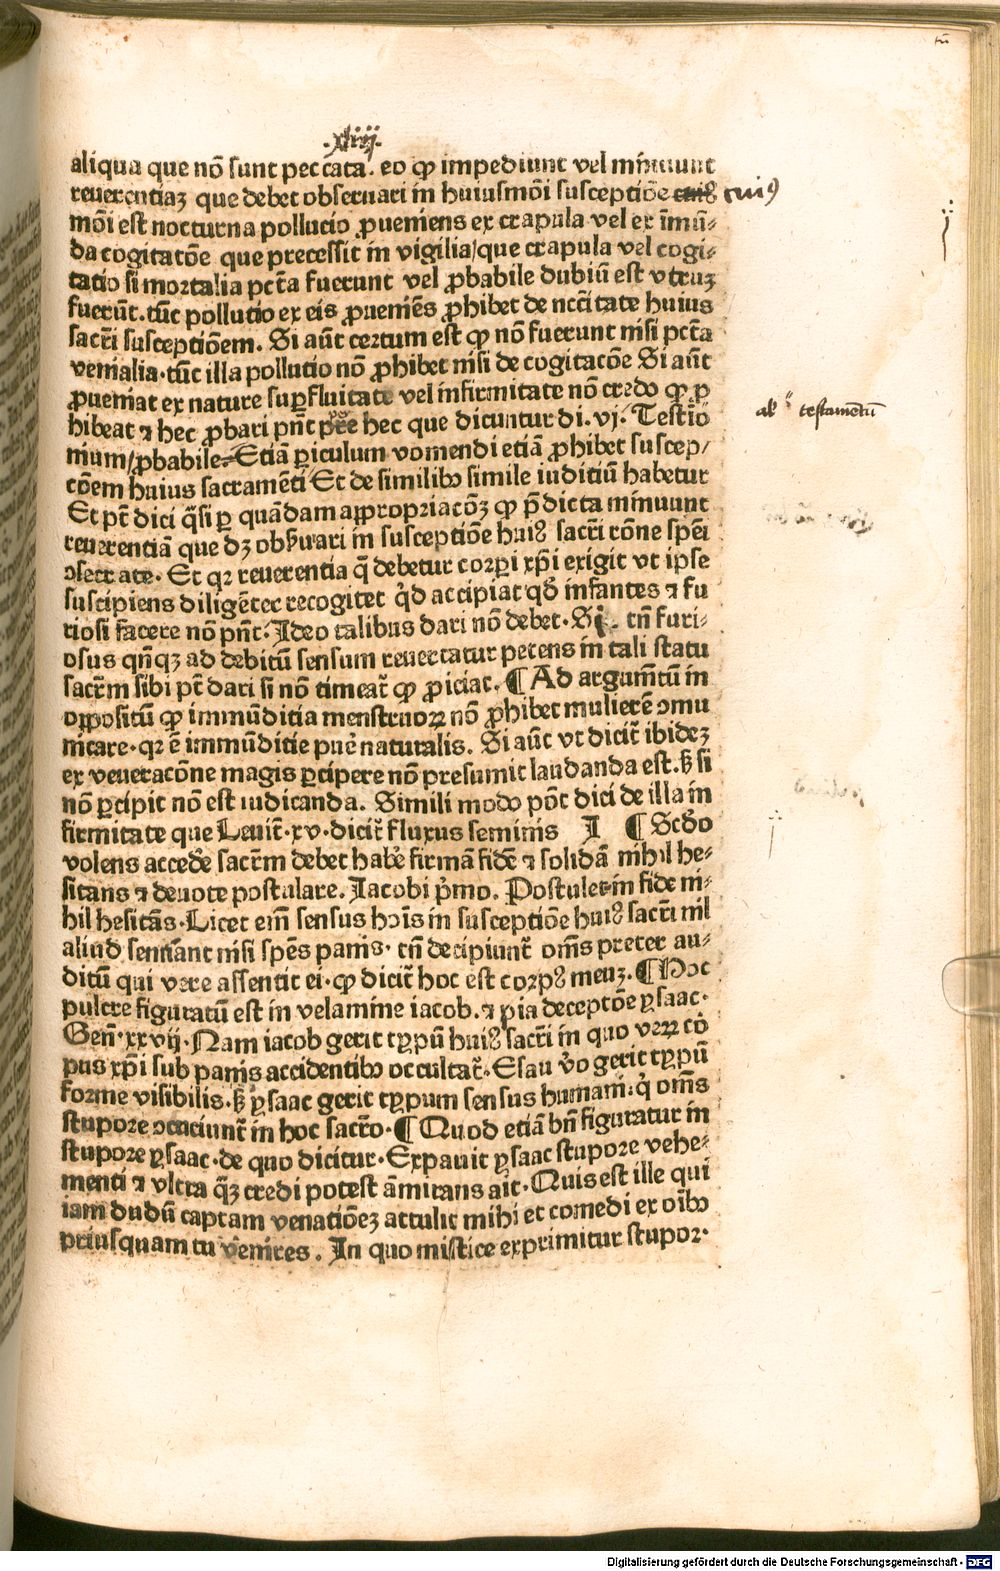 .xliiij.
aliqua que nō sunt peccata. eo ꝙ impediunt vel minuunt
reuerentiaꝫ que debet obseruari in huiusmōi susceptiōe cuiꝰ
mōi est nocturna pollucio ꝓueniens ex crapula vel ex īmū⸗
da cogitacōe que precessit in vigilia/que crapula vel cogi⸗
tatio si mortalia pctā fuerunt vel ꝓbabile dubiū est vtruꝫ
fuerūt. tūc pollutio ex eis ꝓueniēs ꝓhibet de ncc̄itate huius
sacr̄i susceptiōem. Si aūt certum est ꝙ nō fuerunt nisi pctā
venialia. tūc illa pollutio nō ꝓhibet nisi de cogitacōe Si aūt
ꝓueniat ex nature suꝑfluitate vel infirmitate nō credo ꝙ ꝓ
hibeat ⁊ hec ꝓbari pn̄t hec que dicuntur di. vj. Testīo
nium/ꝓbabile. Etiā ꝑiculum vomendi etiā ꝓhibet suscep/
tōem huius sacramēti Et de similibꝰ simile iuditiū habetur
Et pt̄ dici q̄si ꝑ quādam appropriacōꝫ ꝙ p̄dicta minuunt
reuerentiā que dꝫ obẜuari in susceptiōe huiꝰ sacr̄i rōne sp̄ei
ꝯsecrate. Et qꝛ reuerentia q̄ debetur corꝑi xp̄i exigit vt ipse
suscipiens diligētec recogitet qͥd accipiat qd̄ infantes ⁊ fu
riosi facere nō pn̄t. Ideo talibus dari nō debet. Si tn̄ furi⸗
osus qn̄qꝫ ad debitū sensum reuertatur petens in tali statu
sacr̄m sibi pt̄ dari si nō timeat̄ ꝙ ꝓiciat. ¶ Ad argumētū in
oppositū ꝙ immūditia menstruoꝝ nō ꝓhibet mulierē ꝯmu
nicare. qꝛ ē immūditie pue naturalis. Si aūt vt dicit̄ ibideꝫ
ex veneracōne magis ꝑcipere nō presumit laudanda est. ẜ si
nō ꝑcipit nō est iudicanda. Simili modo pōt dici de illa in
firmitate que Leuit̄. xv. dicit̄ fluxus seminis I ¶ Scd̄o
volens accedē sacr̄m debet habē firmā fidē ⁊ solidā nihil he⸗
sitans ⁊ deuote postulare. Iacobi pͥmo. Postulet in fide ni⸗
hil hesitās. Licet eīm sensus hoīs in susceptiōe huiꝰ sacr̄i nil
aliud sentiant nisi sp̄es panis. tn̄ decipiunt̄ om̄s preter au⸗
ditū qui vere assentit ei. ꝙ dicit̄ hoc est corpꝰ meuꝫ. ¶ Hoc
pulcre figuratū est in velamine iacob. ⁊ pia deceptōe ysaac.
Gen̄. xxvij. Nam iacob gerit typū huiꝰ sacr̄i in quo veꝝ co
pus xp̄i sub panis accidentibꝰ occultat̄. Esau vͦo gerit typū
forme visibilis. ẜ ysaac gerit typum sensus humani. qͥ om̄s
stupore ꝯcuciunt̄ in hoc sacr̄o. ¶ Quod etiā bn̄ figuratur in
stupore ysaac. de quo dicitur. Expauit ysaac stupore vehe⸗
menti ⁊ vltra qͣꝫ credi potest āmirans ait. Quis est ille qui
iam dudū captam venatiōeꝫ attulit mihi et comedi ex oībꝰ
priusquam tu venires. In quo mistice exprimitur stupor.
cuiꝰ
testamētū
Digitalisierung gefördert durch die Deutsche Forschungsgemeinschaft - DFG